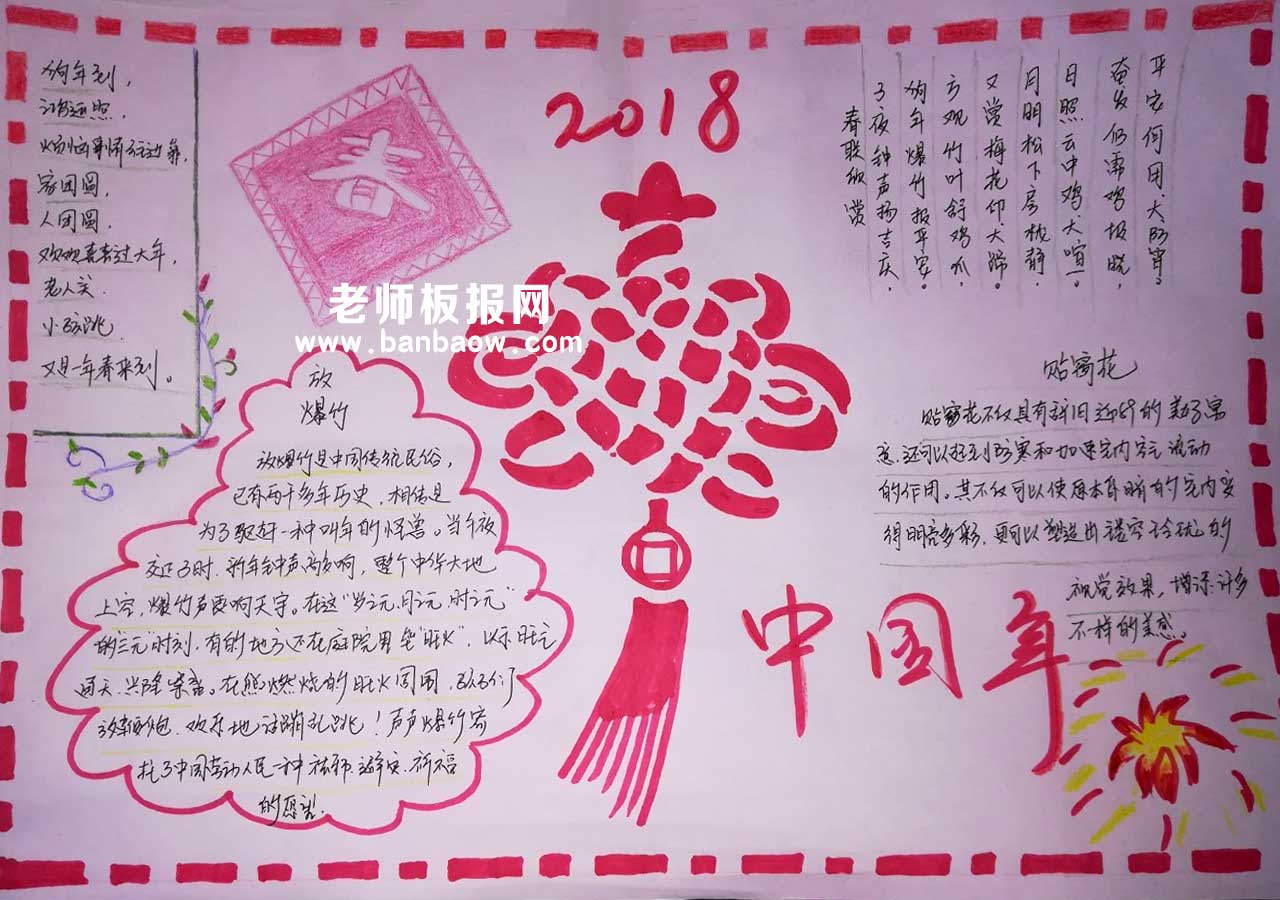 狗年到，
鸿运照，
烦恼事情往边靠，
家团圆，
人团圆，
欢欢喜喜过大年，
老人笑，
小孩跳，
又是一年春来到。
春
2018
老师板报网
www.banbaow.com
春联欣赏
子夜钟声扬吉庆，
狗年爆竹报平安。
方观竹叶舒鸡爪，
又赏梅花印犬蹄。
月明松下房栊静，
日照云中鸡犬喧。
奋发仍需鸡报晓，
平安何用犬防宵。
放
爆竹
放爆竹是中国传统民俗，
已有两千多年历史，相传是
为了驱赶一种叫年的怪兽。当午夜
交正子时，新年钟声敲响，整个中华大地
上空，爆竹声震响天宇。在这“岁之元、月之元、时之元”
的“三元”时刻，有的地方还在庭院里垒“旺火”，以示旺气
通天，兴隆繁盛。在熊燃烧的旺火周围，孩子们
放鞭炮，欢乐地活蹦乱跳！声声爆竹寄
托了中国劳动人民一种祛邪、避灾、祈福
的愿望。
贴窗花
贴窗花不仅具有辞旧迎新的美好寓
意，还可以起到防寒和加速室内空气流动
的作用。其不仅可以使原本昏暗的室内变
得明亮多彩，更可以塑造出镂空玲珑的
视觉效果，增添许多
不一样的美感。
中国年